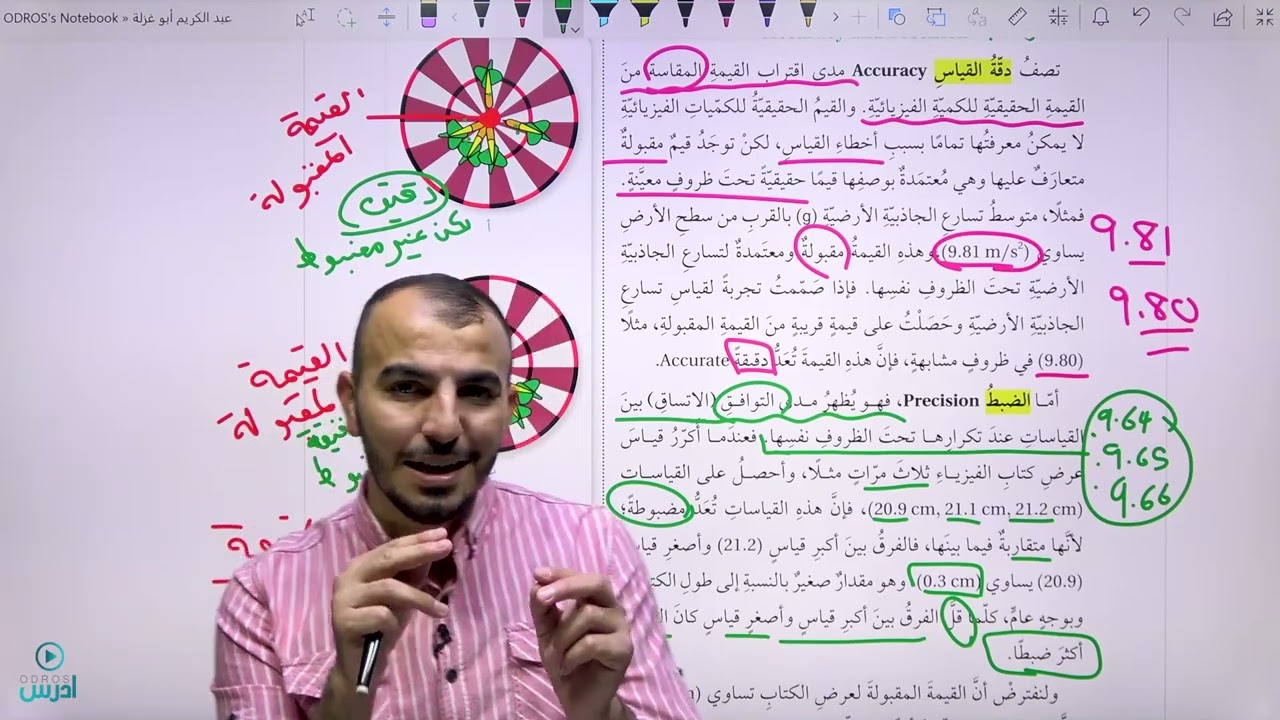 ODROS's Notebook » عبد الكريم أبو غزلة
تصفُ دقّةُ القياسِ Accuracy مدى اقتراب القيمةِ المقاسة منَ
القيمةِ الحقيقيّةِ للكميّةِ الفيزيائيّةِ. والقيمُ الحقيقيّةُ للكميّات الفيزيائيّةِ
لا يمكنُ معرفتُها تمامًا بسببِ أخطاءِ القياسِ، لكنْ توجَدُ قيمٌ مقبولةٌ
متعارَفٌ عليها وهي مُعتمَدةٌ بوصفِها قيمًا حقيقيّةً تحتَ ظروفٍ معيَّنةٍ.
فمثلًا، متوسطُ تسارعِ الجاذبيّةِ الأرضيّةِ (g) بالقربِ من سطحِ الأرضِ
يساوي (9.81 m/s²) وهذهِ القيمةُ مقبولةٌ ومعتَمدةٌ لتسارعِ الجاذبيّةِ
الأرضيّةِ تحتَ الظروفِ نفسِها. فإذا صَمّمتُ تجربةً لقياسِ تسارعِ
الجاذبيّةِ الأرضيّةِ وحَصَلْتُ على قيمةٍ قريبةٍ منَ القيمةِ المقبولةِ، مثلًا
(9.80) في ظروفٍ مشابهةٍ، فإنَّ هذهِ القيمةَ تُعَدُّ دقيقةً Accurate.
أمّا الضبطُ Precision، فهو يُظهرُ مدى التوافقِ (الاتساقِ) بينَ
القياساتِ عندَ تكرارِها تحتَ الظروفِ نفسِها. فعندَما أُكرّرُ قياسَ
عرضِ كتابِ الفيزياءِ ثلاثَ مرّاتٍ مثلًا، وأحصلُ على القياساتِ
(20.9 cm, 21.1 cm, 21.2 cm)، فإنَّ هذهِ القياساتِ تُعَدُّ مضبوطةً؛
لأنَّها متقاربةٌ فيما بينَها، فالفرقُ بينَ أكبرِ قياسٍ (21.2) وأصغرِ
(20.9) يساوي (0.3 cm) وهو مقدارٌ صغيرٌ بالنسبةِ إلى طولِ
وبوجهٍ عامٍّ، كلّما قلَّ الفرقُ بينَ أكبرِ قياسٍ وأصغرِ قياسٍ كانَ
أكثرَ ضبطًا.
ولنفترضْ أنَّ القيمةَ المقبولةَ لعرضِ الكتابِ تساوي
9.81
9.80
9.64
9.65
9.66
القيمة
المقبولة
دقيق
لكن غير مضبوط
القيمة
المقبولة
ODROS
ادرس